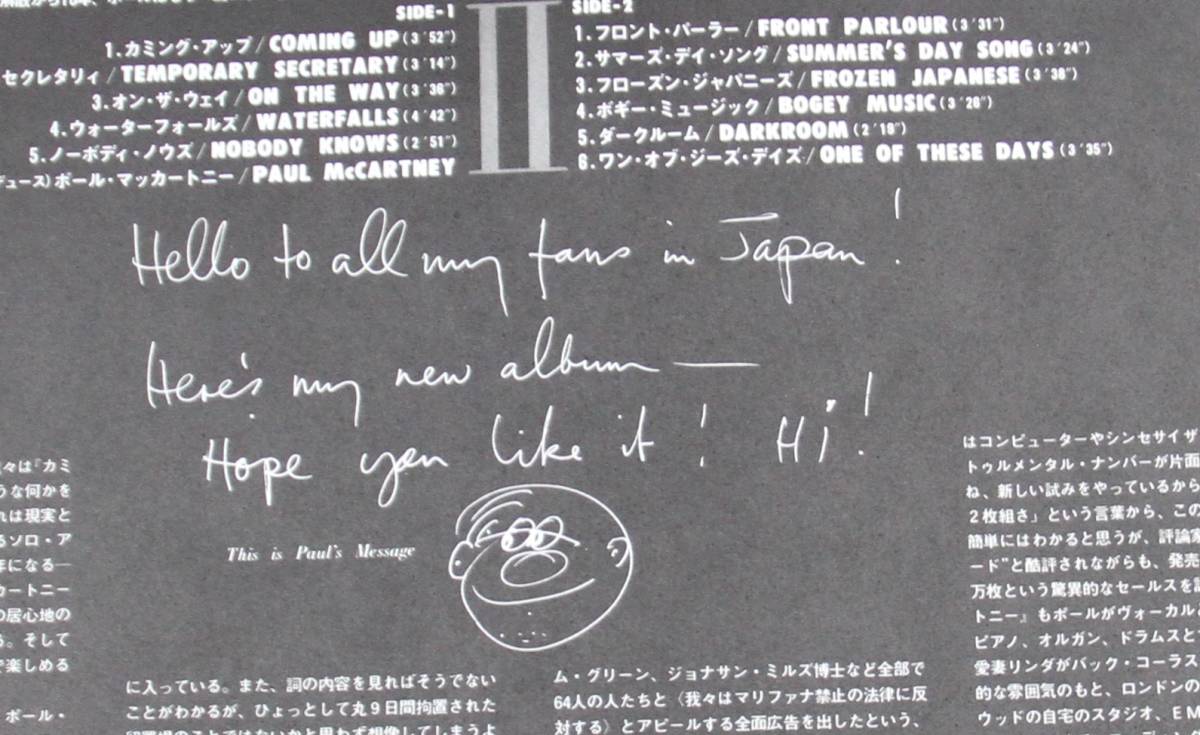 SIDE-1
1.カミング・アップ/COMING UP(3′52″)
セクレタリィ/TEMPORARY SECRETARY(3′14″)
3.オン・ザ・ウェイ/ON THE WAY(3′36″)
4.ウォーターフォールズ/WATERFALLS(4′42″)
5.ノーボディ・ノウズ/NOBODY KNOWS(2′51″)
デュース)ポール・マッカートニー/PAUL McCARTNEY
II
SIDE-2
1.フロント・パーラー/FRONT PARLOUR(3′31″)
2.サマーズ・デイ・ソング/SUMMER'S DAY SONG(3′24″)
3.フローズン・ジャパニーズ/FROZEN JAPANESE(3′38″)
4.ボギー・ミュージック/BOGEY MUSIC(3′28″)
5.ダークルーム/DARKROOM(2′18″)
6.ワン・オブ・ジーズ・デイズ/ONE OF THESE DAYS(3′35″)
Hello to all my fans in Japan!
Here's my new album —
Hope you like it! Hi!
This is Paul's Message
々は『カミ
うな何かを
れは現実と
るソロ・ア
年になる—
カートニー
の居心地の
る。そして
で楽しめる
ポール・
に入っている。また、詞の内容を見ればそうでない
ことがわかるが、ひょっとして丸9日間拘置された
ム・グリーン、ジョナサン・ミルズ博士など全部で
64人の人たちと〈我々はマリファナ禁止の法律に反
対する〉とアピールする全面広告を出したという、
はコンピューターやシンセサイザ
トゥルメンタル・ナンバーが片面
ね、新しい試みをやっているから
2枚組さ」という言葉から、この
簡単にはわかると思うが、評論家
ード"と酷評されながらも、発売
万枚という驚異的なセールスを
トニー』もポールがヴォーカル
ピアノ、オルガン、ドラムスと
愛妻リンダがバック・コーラス
的な雰囲気のもと、ロンドンの
ウッドの自宅のスタジオ、EM